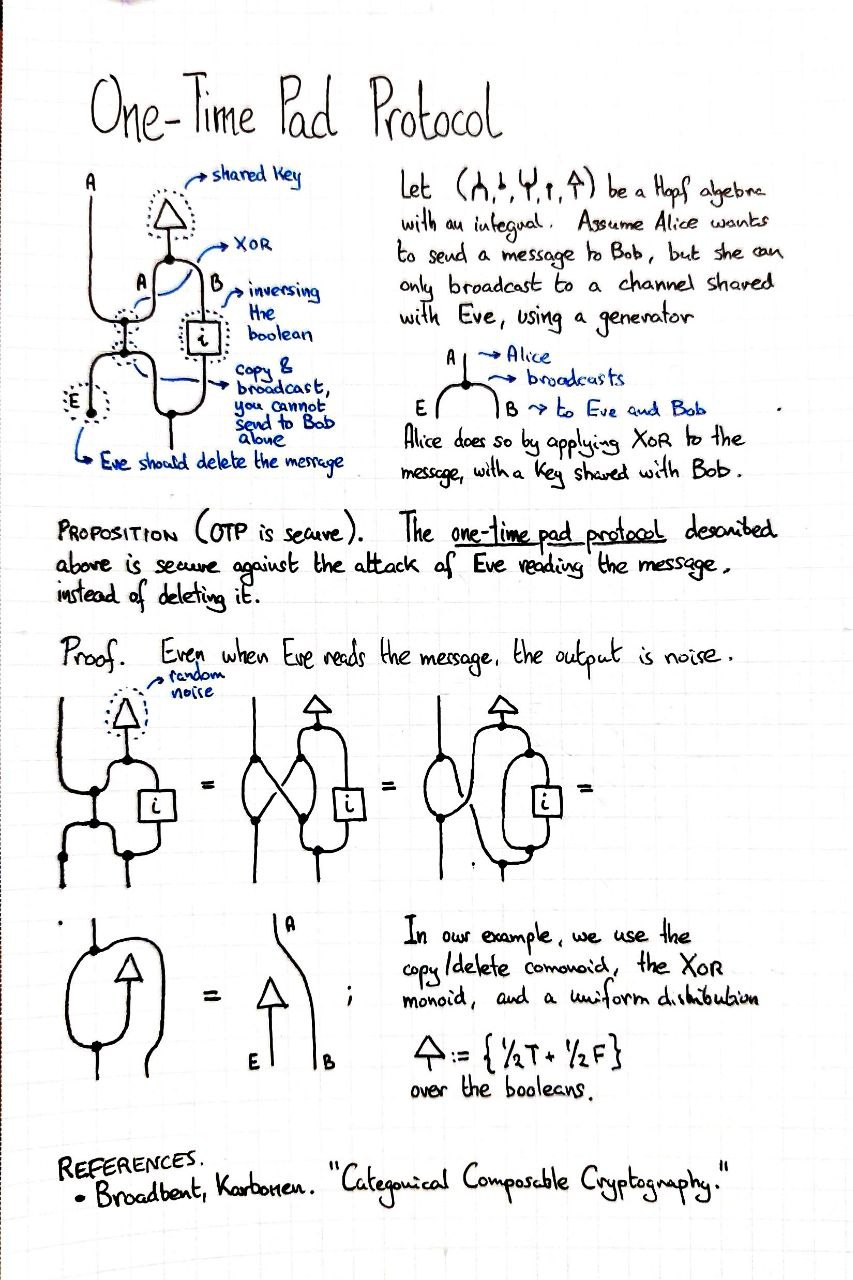 One-Time Pad Protocol
A
shared Key
XOR
A
B
inversing
the
boolean
i
copy &
broadcast,
you cannot
send to Bob
alone
E
Eve should delete the message
Let ( , , , , ) be a Hopf algebra
with an integral. Assume Alice wants
to send a message to Bob, but she can
only broadcast to a channel shared
with Eve, using a generator
A → Alice
→ broadcasts
E B → to Eve and Bob
Alice does so by applying XOR to the
message, with a Key shared with Bob.
PROPOSITION (OTP is secure). The one-time pad protocol described
above is secure against the attack of Eve reading the message,
instead of deleting it.
Proof. Even when Eve reads the message, the output is noise.
random
noise
i = i = i =
= A
E B ;
In our example, we use the
copy/delete comonoid, the XOR
monoid, and a uniform distribution
:= {½T + ½F}
over the booleans.
REFERENCES.
• Broadbent, Karvonen. "Categorical Composable Cryptography."